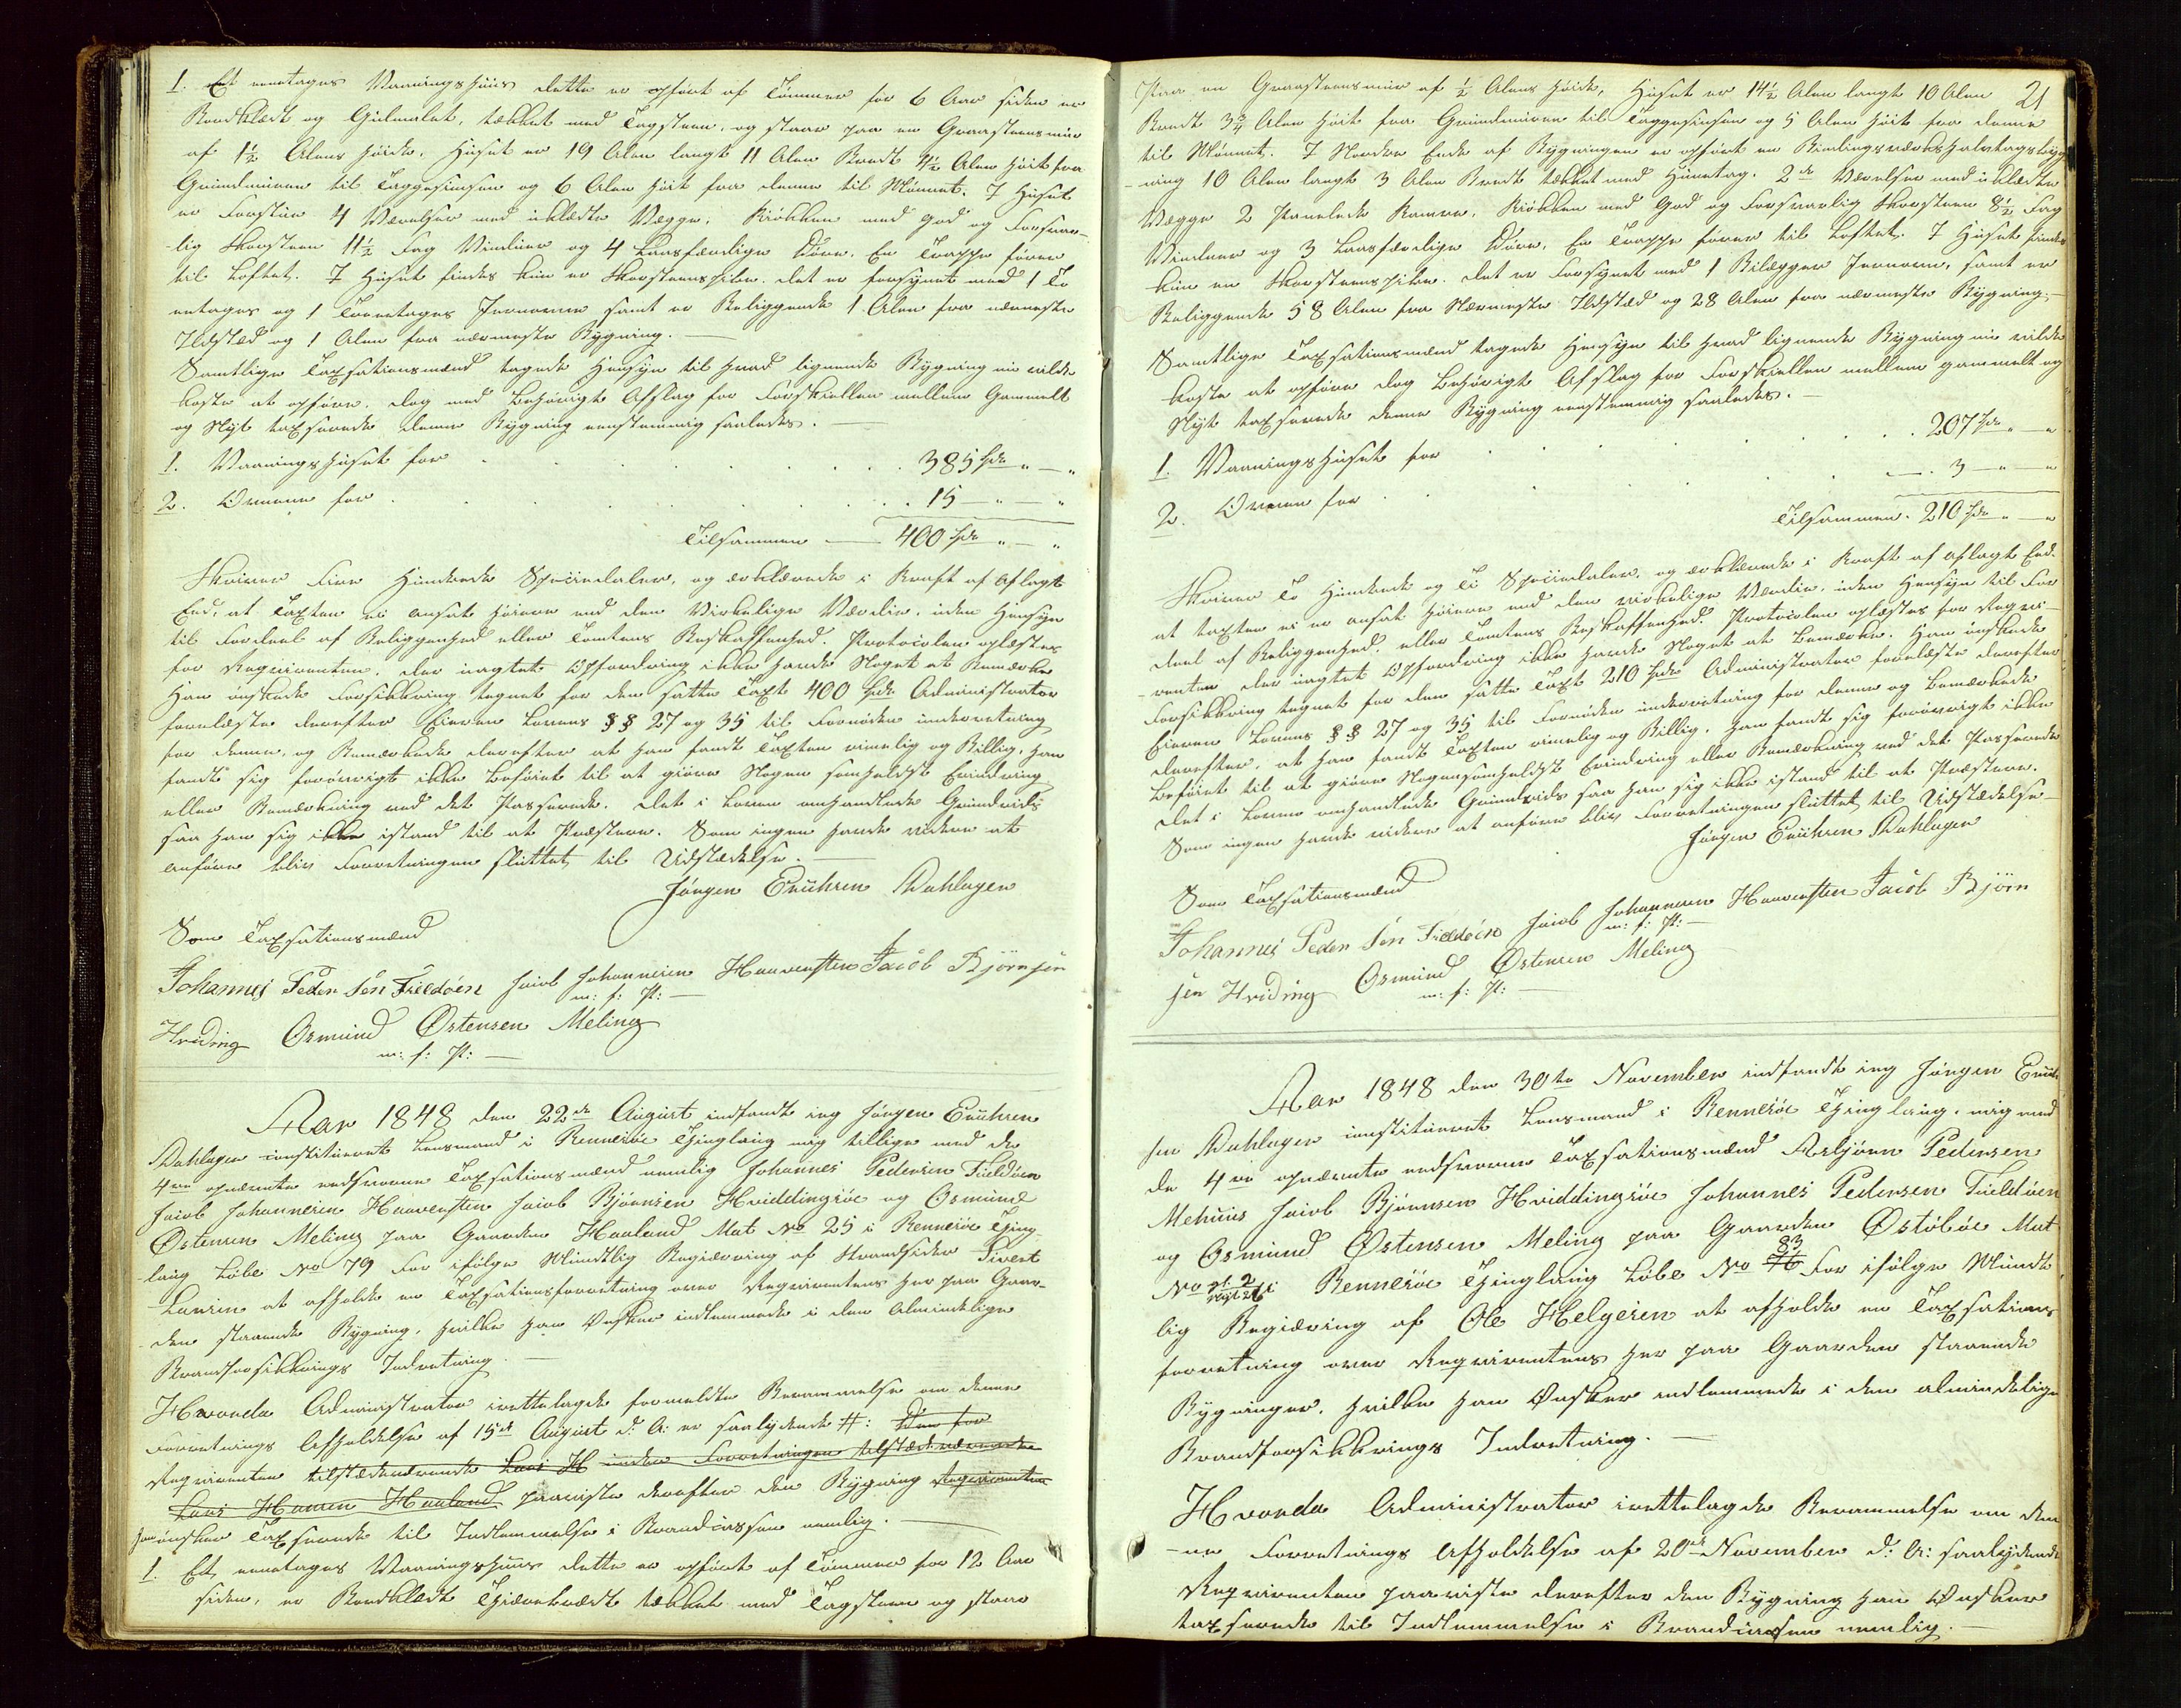 1. Et eenetages Vaaningshuus dette er opført af Tømmer for 6 Aar siden er
Bordklædt og Guulmalet, tækket med Tagsteen, og staar paa en Graasteensmuur
af 1½ Alens Høide, Huset er 19 Alen langt 11 Alen Bredt 4½ Alen høit fra
Grundmuren til Taggesimsen og 6 Alen høit fra denne til Mønnet. I Huset
er Forstue 4 Værelser med uklædte Vægge, Kiøkken med god og Forsvar-
lig Skorsteen 11½ Fag Vinduer og 4 Laasfærdige Døre. En Trappe fører
til Loftet. I Huset findes kun en Skorsteenspibe. det er forsynet med 1 To
etages og 1 Treetages Jernovne samt er Beliggende 1 Alen fra nærmeste
Ildsted og 1 Alen fra nærmeste Bygning.
Samtlige Taxsationsmænd tagende Hensyn til hvad lignende Bygning nu vilde
koste at opføre, dog med behørigt Afslag for Forskiellen mellem Gammelt
og Nyt taxserede denne Bygning eenstemmig saaledes.
1. Vaaningshuset for . . . 385 Spd " — "
2. Ovnene for . . . 15 — " — "
Tilsammen — 400 Spd " — "
Skriver Fire Hundrede Speciedaler, og erklærede i Kraft af aflagt
Eed, at Taxten ei ansat høiere end den Virkelige Værdie, uden Hensyn
til Fordeel af Beliggenhed eller Tomtens Beskaffenhed. Protocolen oplæstes
for Reqvirenten, der uagtet Opfordring ikke havde Noget at Bemærke
Han ønskede Forsikkring tegnet for den satte Taxt 400 Spd. Administrator
forelæste derefter Eieren Lovens §§ 27 og 35 til Fornøden underretning
for denne, og Bemærkede derefter at han fandt Taxten rimelig og Billig, han
fandt sig forøvrigt ikke beføiet til at giøre Nogen somhelst Erindring
eller Bemærkning ved det Passerede. Det i Loven omhandlede Grundrids
saa han sig ikke istand til at Præstere. Som ingen havde videre at
anføre blev Forretningen sluttet til Udstædelse.
Jørgen Erichsen Dahlager
Som Taxsationsmænd
Johannes Peder sen Fieldøen Jacob Johannesen Haavensteen Jacob Bjørnsen
m: f: P:
Hviding Osmund Østensen Meling
m: f: P:
Aar 1848 den 22de August indfandt jeg Jørgen Erichsen
Dahlager constitueret Lensmand i Rennesøe Thinglaug mig tillige med de
4re opnævnte eedsvorne Taxsationsmænd nemlig Johannes Pedersen Fieldøen
Jacob Johannesen Haavensteen Jacob Bjørnsen Hviddingsøe og Osmund
Østensen Meling paa Gaarden Haaland Mat No 25 i Rennesøe Thing
laug Løbe No 79 for ifølge Mundtlig Begiæring af Strandsidder Sivert
Larsen at afholde en Taxsationsforretning over Reqvirentens her paa Gaar-
den staaende Bygning, hvilke han Ønsker indlemmede i den Almindelige
Brandforsikkrings Indretning.
Hvorda Administrator irettelagde formeldte Berammelse om denne
Forretnings Afholdelse af 15de August d: A: er saalydende #: Den for
Reqvirenten tilstædeværende Lars H under Forretningen tilstædeværende
Lars Hansen Haaland paaviste derefter den Bygning Reqvirenten
han ønsker Taxserede til Indlemmelse i Brandcassen nemlig.
1. Et, eenetages Vaaningshuus dette er opført af Tømmer for 12 Aar
siden, er Bordklædt Thiærebrædt tækket med Tagsteen og staar
21
Paa en Graasteensmuur af ½ Alens Høide, Huset er 14½ Alen langt 10 Alen
Bredt 3¾ Alen høit fra Grundmuren til Taggesimsen og 5 Alen høit fra denne
til Mønnet. I Nordre Ende af Bygningen er opført en Bindingsværks halvtagsbyg
-ning 10 Alen langt 3 Alen Bredt tækket med Huuntag. 2de Værelser med uklædte
Vægge 2 Panelede Kamre, Kiøkken med God og Forsvarlig Skorsteen 8½ Fag
Vinduer og 3 Laasfærdige Døre, En Trappe fører til Loftet. I Huset findes
kun en Skorsteenspibe. det er Forsynet med 1 Bilægger Jernovn, samt er
Beliggende 58 Alen fra Nærmeste Ildsted og 28 Alen fra nærmeste Bygning.
Samtlige Taxsationsmænd tagende Hensyn til hvad lignende Bygning nu vilde
koste at opføre dog behørigt Afslag for Forskiellen mellem gammelt og
Nyt taxserede denne Bygning eenstemmig saaledes.
1. Vaaningshuset for . . . 207 Spd " — "
2. Ovnen for . . . 3 — " — "
Tilsammen. 210 Spd " — "
Skriver To Hundrede og Ti Speciedaler, og erklærede i Kraft af aflagt Eed.
at Taxten ei er ansat høiere end den virkelige Værdie, uden Hensyn til For
deel af Beliggenhed, eller Tomtens Beskaffenhed. Protocolen oplæstes for Reqvi-
renten der uagtet Opfordring ikke havde Noget at bemærke. Han ønskede
Forsikkring tegnet for den satte Taxt 210 Spd Administrator forelæste derefter
Eieren Lovens §§ 27 og 35 til Fornøden underretning for denne og bemærkede
derefter, at han fandt Taxten rimelig og Billig, han fandt sig forøvrigt ikke
Beføiet til at giøre Nogensomhelst Erindring eller Bemærkning ved det Passerede
Det i Loven omhandlede Grundrids saa han sig ikke istand til at Præstere.
Som ingen havde videre at anføre blev Forretningen sluttet til Udstædelse
Jørgen Erichsen Dahlager
Som Taxsationsmænd
Johannes Peder sen Fieldøen Jacob Johannesen Haavensteen Jacob Bjørn
m: f: P:
sen Hviding Osmund Østensen Meling
m: f: P:
Aar 1848 den 30te November indfandt jeg Jørgen Erich
sen Dahlager constitueret Lensmand i Rennesøe Thinglaug, mig med
de 4re opnævnte eedsvorne Taxsationsmænd Asbjørn Pedersen
Mehuus Jacob Bjørnsen Hviddingsøe Johannes Pedersen Fieldøen
og Osmund Østensen Meling paa Gaarden Østøbøe Mat
No i Rennesøe Thinglaug Løbe No 83 for ifølge Mundt
lig Begiæring af Ole Helgesen at afholde en Taxsations
forretning over Reqvirentens her paa Gaarden staaende
Bygninger, hvilke han Ønsker indlemmede i den almindelige
Brandforsikkrings Indretning.
Hvorda Administrator irettelagde Berammelse om den
-ne Forretnings Afholdelse af 20de November d: A: saalydende
Reqvirenten paaviste derefter den Bygning han Ønsker
taxserede til Indlemmelse i Brandcassen nemlig.